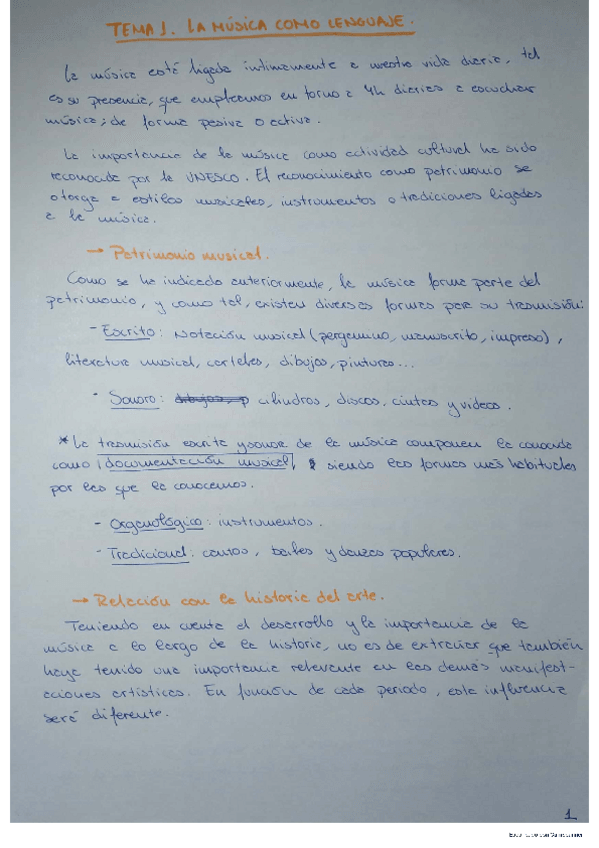 TEMA 1. LA MÚSICA COMO LENGUAJE.
La música está ligada íntimamente a nuestra vida diaria, tal
es su presencia, que empleamos en torno a 4h diarias a escuchar
música; de forma pasiva o activa.
La importancia de la música como actividad cultural ha sido
reconocida por la UNESCO. El reconocimiento como patrimonio se
otorga a estilos musicales, instrumentos o tradiciones ligadas
a la música.
→ Patrimonio musical.
Como se ha indicado anteriormente, la música forma parte del
patrimonio, y como tal, existen diversas formas para su trasmisión:
- Escrito: Notación musical (pergamino, manuscrito, impreso),
literatura musical, carteles, dibujos, pinturas...
- Sonoro: dibujos, p cilindros, discos, cintas y videos.
* La trasmisión escrita y sonora de la música componen la conocida
como ¡documentación musical!, siendo las formas más habituales
por las que la conocemos.
- Organológico: instrumentos.
- Tradicional: cantos, bailes y danzas populares.
→ Relación con la historia del arte.
Teniendo en cuenta el desarrollo y la importancia de la
música a lo largo de la historia, no es de extrañar que también
haya tenido una importancia relevante en las demás manifest-
aciones artísticas. En función de cada periodo, esta influencia
será diferente.
1